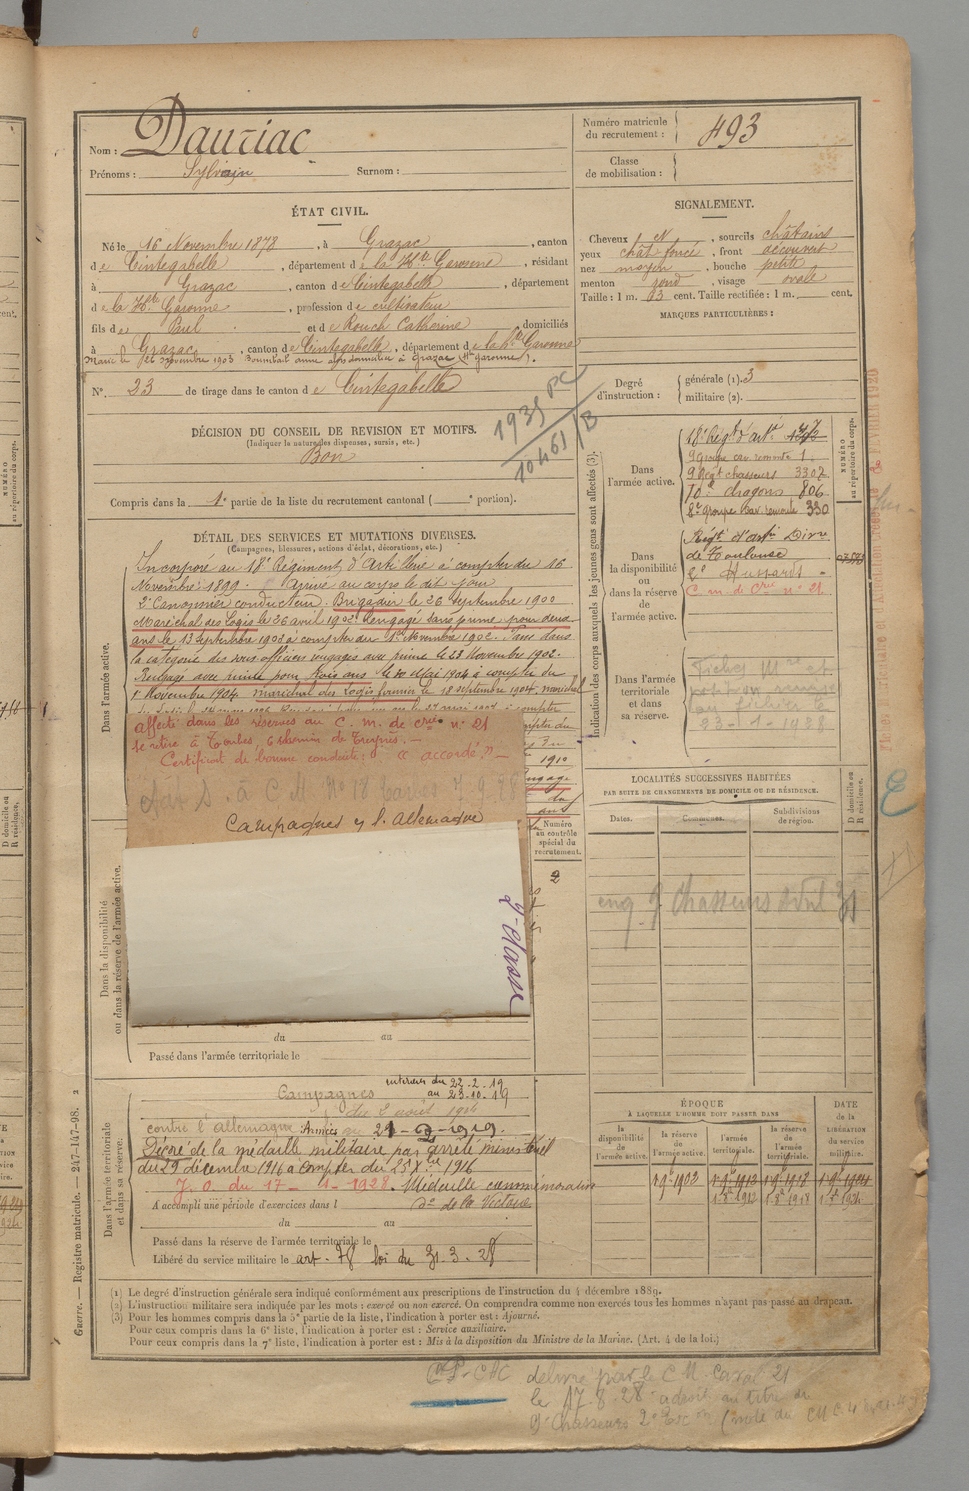 Nom : Dauriac
Prénoms : Sylvain Surnom :
Numéro matricule du recrutement : 493
Classe de mobilisation :
ÉTAT CIVIL.
Né le 16 Novembre 1878, à Grazac, canton
de Cintegabelle, département de la Hte Garonne, résidant
à Grazac, canton de Cintegabelle, département
de la Hte Garonne, profession de cultivateur
fils de Paul et de Rouch Catherine, domiciliés
à Grazac, canton de Cintegabelle, département de la Hte Garonne
Marié le novembre 1903 domicilié à Grazac (Hte Garonne).
N° 23 de tirage dans le canton de Cintegabelle
1935 PC
10461/B
SIGNALEMENT.
Cheveux N, sourcils châtains
yeux chât foncé, front découvert
nez moyen, bouche petite
menton rond, visage ovale
Taille : 1 m. 63 cent. Taille rectifiée : 1 m. cent.
MARQUES PARTICULIÈRES :
Degré d'instruction : générale (1). 3
militaire (2).
DÉCISION DU CONSEIL DE REVISION ET MOTIFS.
(Indiquer la nature des dispenses, sursis, etc.)
Bon
Compris dans la 1e partie de la liste du recrutement cantonal ( e portion).
DÉTAIL DES SERVICES ET MUTATIONS DIVERSES.
(Campagnes, blessures, actions d'éclat, décorations, etc.)
Dans l'armée active.
Incorporé au 18e Régiment d'Artillerie à compter du 16
Novembre 1899. Arrivé au corps le dit jour
2e Canonnier conducteur. Brigadier le 26 septembre 1900
Maréchal des Logis le 26 avril 1902. Rengagé sans prime pour deux
ans le 13 Septembre 1902 à compter du 1er Novembre 1902. Passé dans
la catégorie des sous officiers rengagés avec prime le 23 Novembre 1902.
Rengagé avec prime pour trois ans le 10 Mai 1904 à compter du
1 Novembre 1904. maréchal des Logis fourrier le 18 septembre 1904. maréchal
affecté dans les réserves au C. m. de crie n° 21
se retire à Tarbes, 6 chemin de
Certificat de bonne conduite : "accordé" -
à C M N° 18 Tarbes 7.9.28
Campagnes c/ l'Allemagne
2e classe
Numéro au contrôle spécial du recrutement.
2
Dans la disponibilité ou dans la réserve de l'armée active.
du au
Passé dans l'armée territoriale le
Indication des corps auxquels les jeunes gens sont affectés (3).
Dans l'armée active.
18e Régt d'artie
9 Groupe cav. remonte 1.
9 Régt chasseurs 3307
10e dragons 806
2e groupe Cav. remonte 330
NUMÉRO au répertoire du corps.
Dans la disponibilité ou dans la réserve de l'armée active.
Régt d'artie Dive de Toulouse
2e Hussards
C. m. de Crie n° 21
Dans l'armée territoriale et dans sa réserve.
Fiches Mre et
au fichier le
23-1-1928
LOCALITÉS SUCCESSIVES HABITÉES
PAR SUITE DE CHANGEMENTS DE DOMICILE OU DE RÉSIDENCE.
Dates. Communes. Subdivisions de région. D domicile ou R résidence.
eng 9 Chasseurs
Dans l'armée territoriale et dans sa réserve.
Campagnes intérieur du 22-2-19
au 23-10-19
du 2 août 1914
contre l'allemagne : Armées au 21-2-1919.
Décoré de la médaille militaire par arrêté ministériel
du 29 décembre 1916 à compter du 25 Xbre 1916
J. O. du 17-1-1928. Médaille commémorative
A accompli une période d'exercices dans l de la Victoire
du au
Passé dans la réserve de l'armée territoriale le
Libéré du service militaire le art. 78 loi du 31.3.28
ÉPOQUE
À LAQUELLE L'HOMME DOIT PASSER DANS
la disponibilité de l'armée active. la réserve de l'armée active. l'armée territoriale. la réserve de l'armée territoriale. DATE de la LIBÉRATION du service militaire.
1-9-1902 1-9-1912 1-9-1918 1-9-1924
1-8-1912 1-8-1918 1-8-1924
(1) Le degré d'instruction générale sera indiqué conformément aux prescriptions de l'instruction du 4 décembre 1889.
(2) L'instruction militaire sera indiquée par les mots : exercé ou non exercé. On comprendra comme non exercés tous les hommes n'ayant pas passé au drapeau.
(3) Pour les hommes compris dans la 5e partie de la liste, l'indication à porter est : Ajourné.
Pour ceux compris dans la 6e liste, l'indication à porter est : Service auxiliaire.
Pour ceux compris dans la 7e liste, l'indication à porter est : Mis à la disposition du Ministre de la Marine. (Art. 4 de la loi.)
délivré par le C M Caval 21
le 17-8-28 au titre du
9e Chasseurs 2e Esc (note du
Guerre. — Registre matricule. — 247-147-98. 2